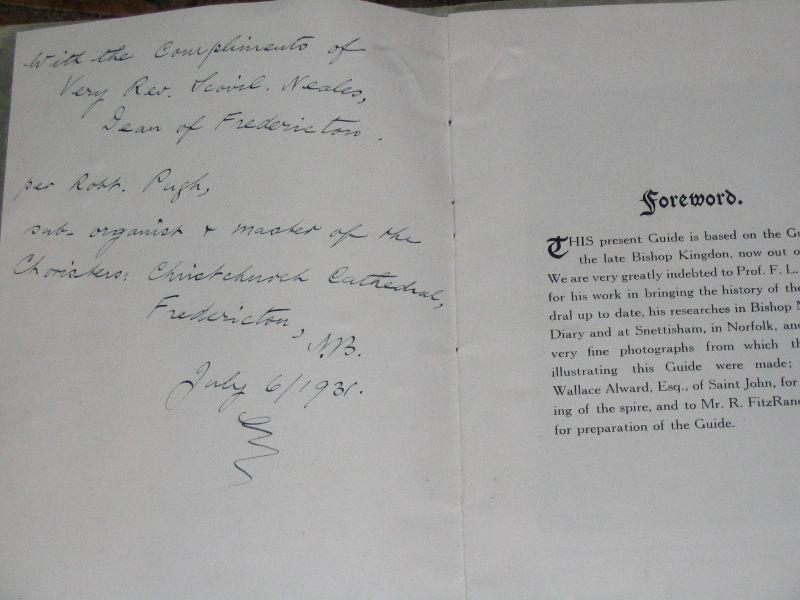 With the Compliments of
Very Rev. Scovil. Neales,
Dean of Fredericton.
per Robt. Pugh,
sub-organist & master of the
Choristers: Christchurch Cathedral,
Fredericton,
N.B.
July 6/1931.
Foreword.
THIS present Guide is based on the
the late Bishop Kingdon, now out
We are very greatly indebted to Prof. F. L.
for his work in bringing the history of the
dral up to date, his researches in Bishop
Diary and at Snettisham, in Norfolk, and
very fine photographs from which
illustrating this Guide were made;
Wallace Alward, Esq., of Saint John, for
ing of the spire, and to Mr. R.
for preparation of the Guide.